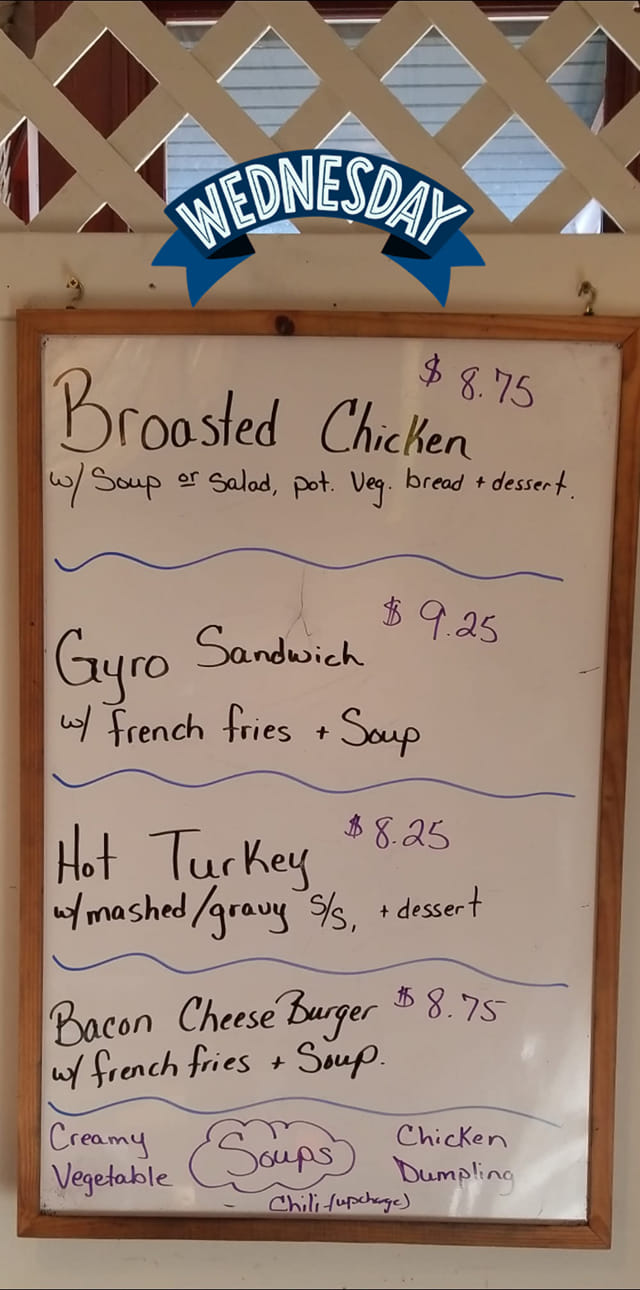 WEDNESDAY
$ 8.75
Broasted Chicken
w/ Soup or Salad, pot. Veg. bread + dessert.
$ 9.25
Gyro Sandwich
w/ french fries + Soup
$ 8.25
Hot Turkey
w/ mashed/gravy S/S, + dessert
Bacon Cheese Burger $ 8.75
w/ french fries + Soup.
Creamy Vegetable
Soups
Chicken Dumpling
- Chili - (upcharge)